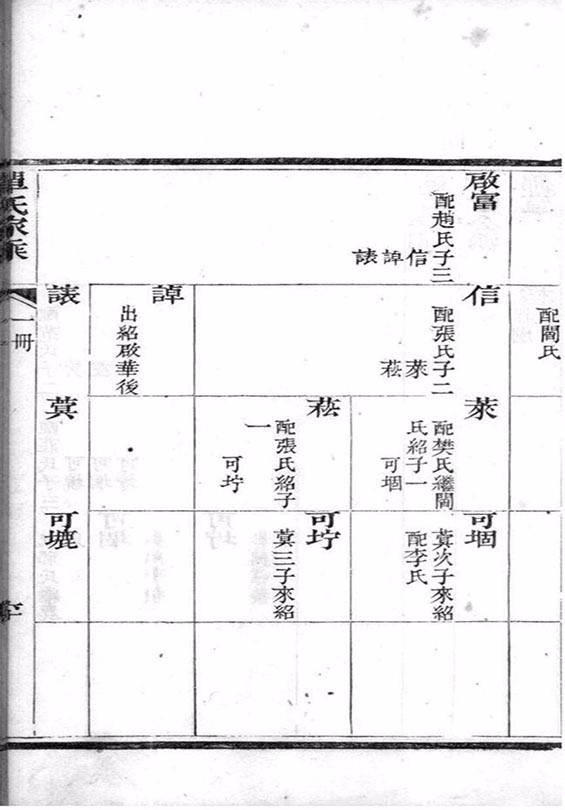 配閻氏
啟富
配趙氏子三
信 諱 諘
信
配張氏子二
萊 菘
諱
出紹啟華後
諘
萊
配樊氏繼閻
氏紹子一
可堌
菘
配張氏紹子
一
可坾
蓂
可堌
蓂次子來紹
配李氏
可坾
蓂三子來紹
氏家乘
一冊